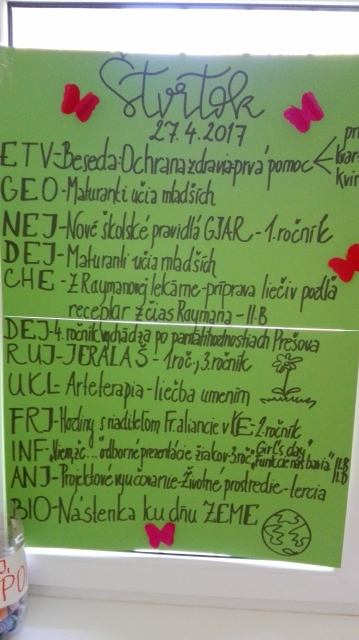 Štvrtok
27.4.2017
ETV-Beseda:Ochrana zdravia-prvá pomoc
GEO-Maturanti učia mladších
NEJ-Nové školské pravidlá GJAR - 1.ročník
DEJ-Maturanti učia mladších
CHE - Z Raymanovej lekárne-príprava liečiv podľa
receptár z čias Raymana - II.B
DEJ-4. ročník vychádza po pamätihodnostiach Prešova
RUJ-JERALAŠ - 1roč, 3.ročník
UKL Arteterapia - liečba umením
FRJ-Hodiny s riaditeľom Fr.aliancie v KE-2.ročník
INF- odborné prezentácie žiakov 3.roč "Girl's day"
"Funkcie nás bavia" II.B
II.B
ANJ-Projektové vyučovanie-Životné prostredie-tercia
BIO-Nástenka ku dňu ZEME
PO